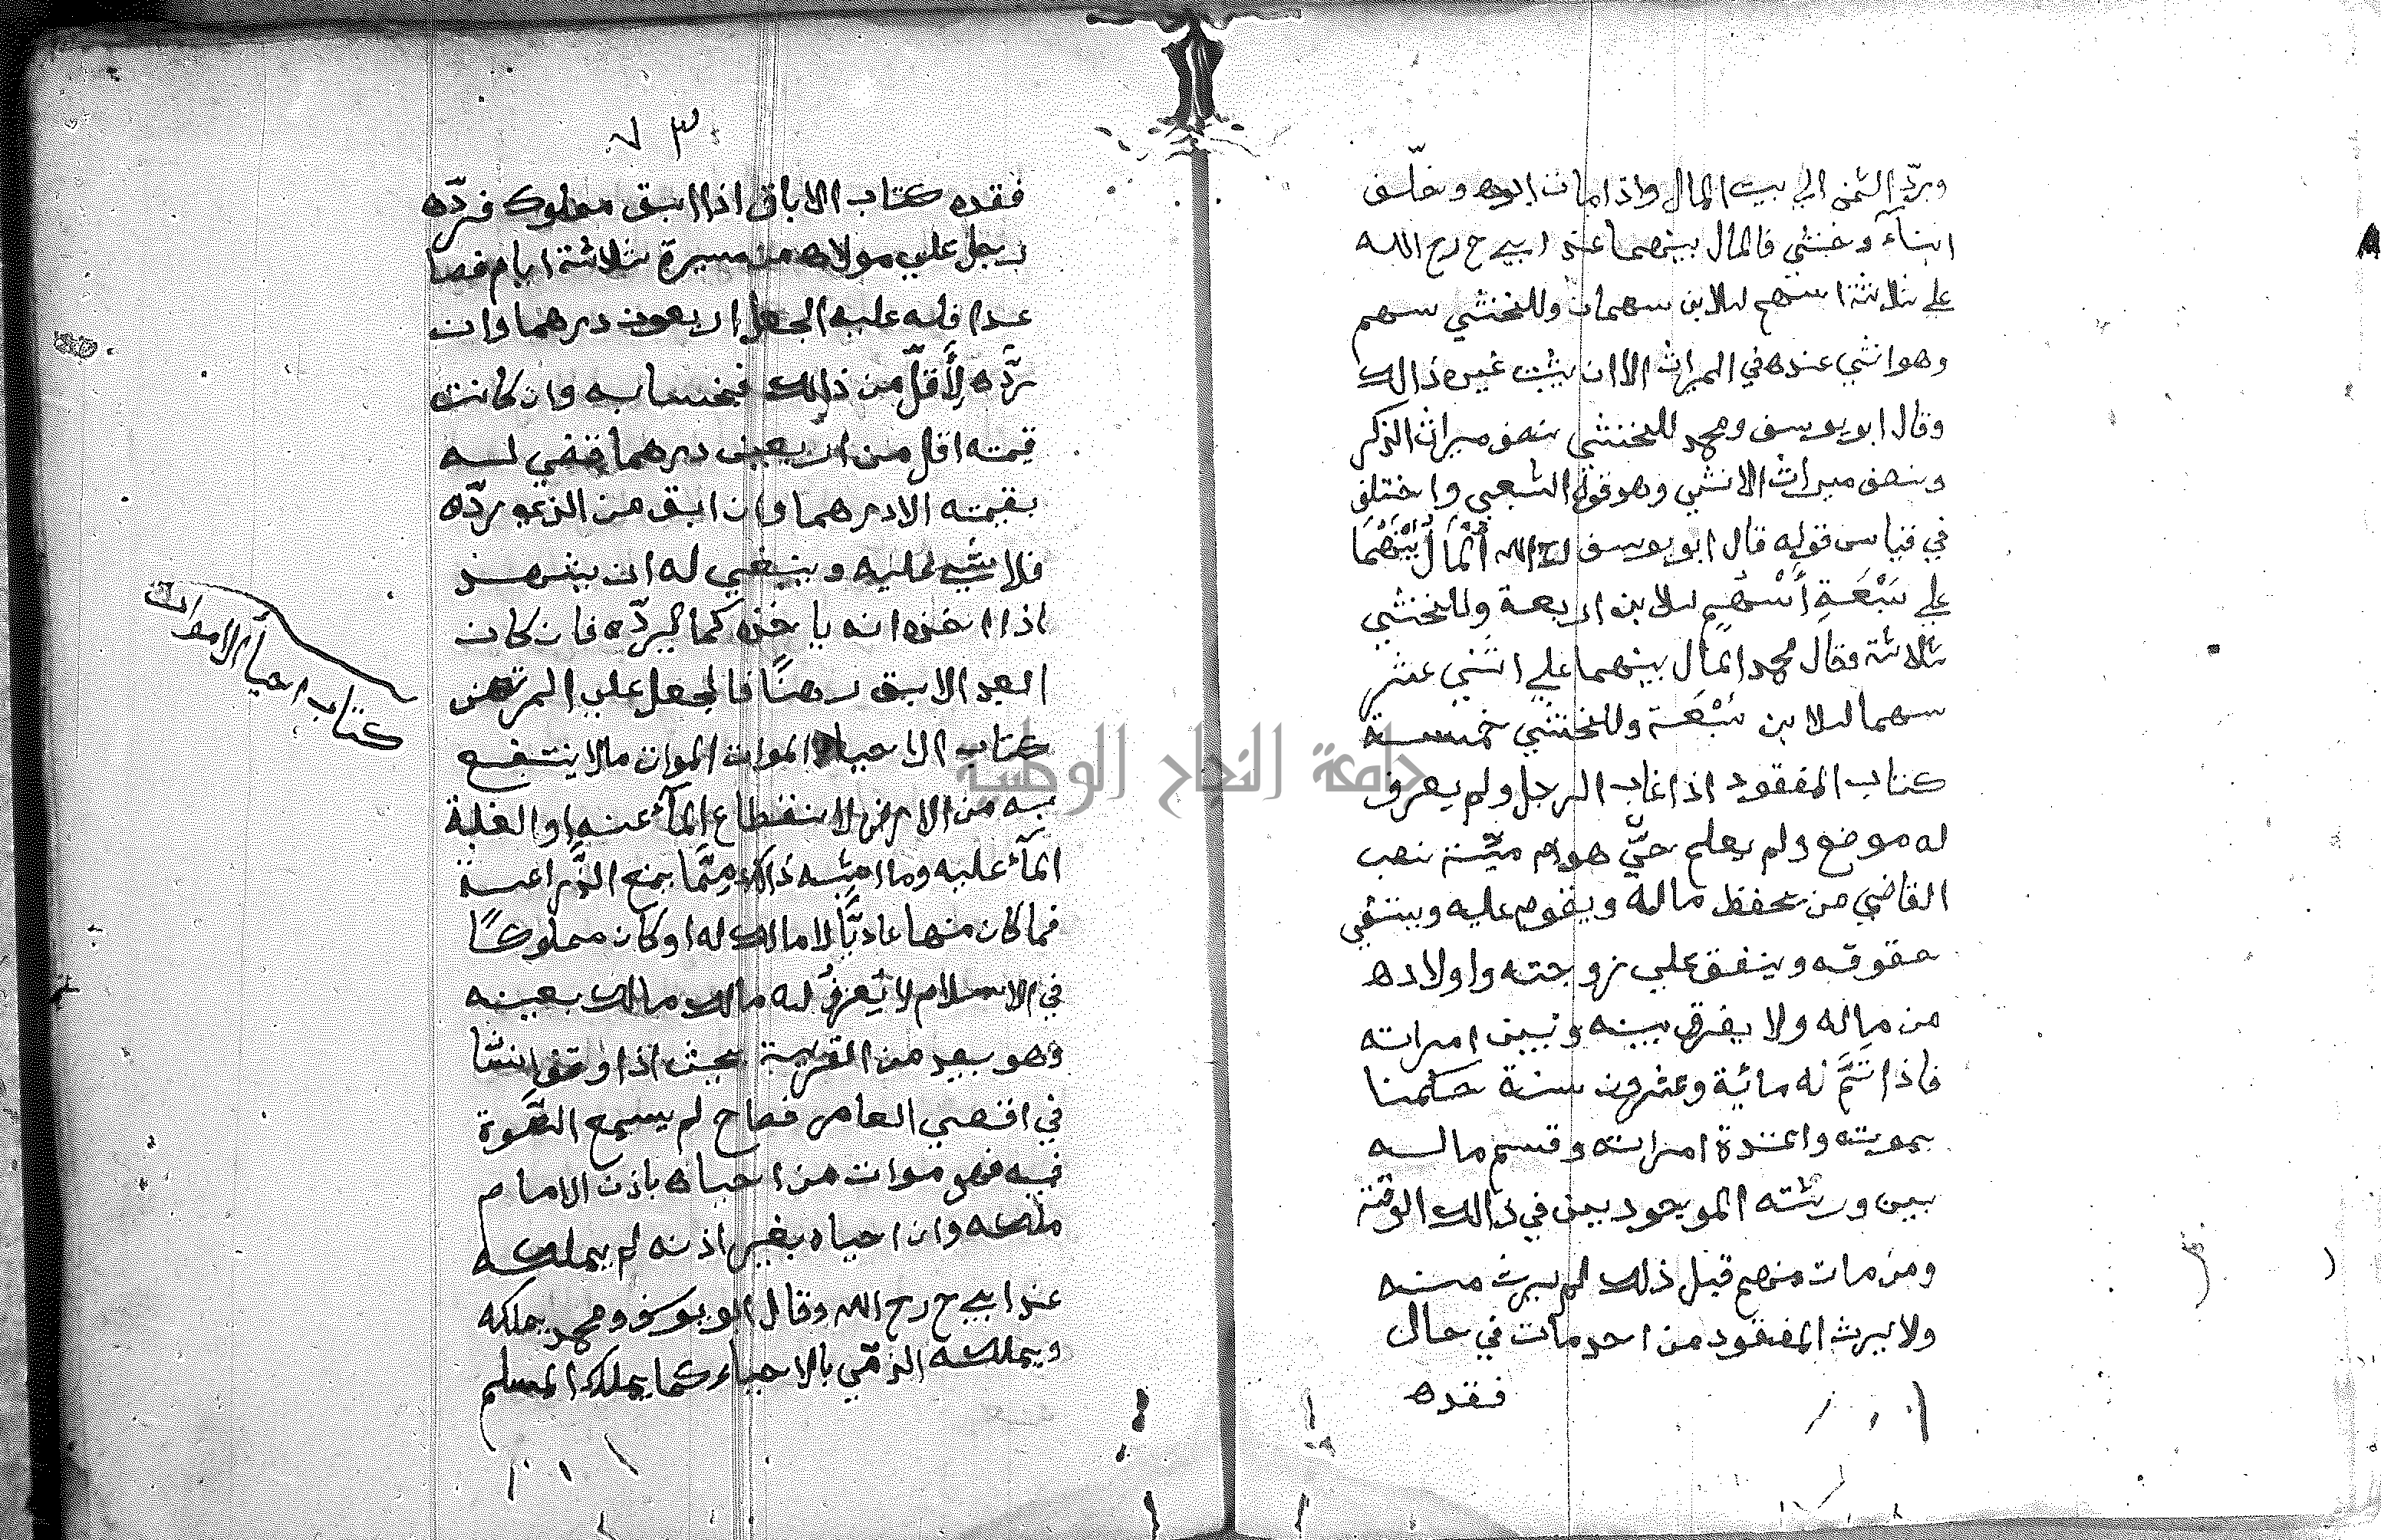 ويردّ الثمن الي بيت المال واذا مات ابوه وخلّف
ابنآء وخنثي فالمال بينهما عند ابي ح رح الله
علي ثلاثة اسهم للابن سهمان وللخنثي سهم
وهو انثي عنده في الميراث الا ان يثبت غيره ذالك
وقال ابو يوسف ومحمد للخنثي نصف ميراث الذكر
ونصف ميراث الانثي وهو قول الشعبي واختلف
في قياس قوله قال ابو يوسف رح الله اَلْمَالُ بَيْنَهُمَا
علي سَبْعَةِ أَسْهُمٍ للابن اربعة وللخنثي
ثلاثة وقال محمد المال بينهما علي اثني عشر
سهما للابن سَبْعَة وللخنثي خمسة
كتاب المفقود اذا غاب الرجل ولم يعرف
له موضع ولم يعلم حيّ هو ام ميّت نصب
القاضي من يحفظ ماله ويقوم عليه ويستفي
حقوقه وينفق علي زوجته واولاده
من ماله ولا يفرق بينه وبين امراته
فاذا تَمَّ له مائية وعشرون سنة حكمنا
بموته واعتدة امراته وقسم ماله
بين ورثته الموجودين في ذالك الوقت
ومن مات منهم قبل ذلك لم يرث منه
ولا يرث المفقود من احد مات في حال
فقده
٧٣
فقده كتاب الاباق اذا ابق مملوك فردّه
رجل علي مولاه من مسيرة ثلاثة ايام فصا
عدا فله عليه الجعل اربعون درهما وان
ردّه لِأَقلّ من ذالك فبحسابه وان كانت
قيمته اقل من اربعين درهما قضي له
بقيمته الا درهما وان ابق من الذي ردّه
فلا شي عليه وينبغي له ان يشهد
اذا اخذه انه ياخذه كما ليردّه فان كان
العبد الابق رهنًا فالجعل علي المرتهن
كتاب الاحياء الموات الموات مالا ينتفع
به من الارض لانقطاع المآء عنه او الغلبة
المآء عليه وما اشبه ذالك مِمَّا يمنع الزَّراعة
فما كان منها عاديًّا لا مالك له او كان مملوكًا
في الاسلام لا يُعرفُ له مالك مالك بعينه
وهو بعيد من القرية بحيث اذا وقف انسَا
في اقصي العامر فصاح لم يسمع الصَّوة
فيه فهو موات من احياه باذن الامام
ملكه وان احياه بغير اذنه لم يملكه
عند ابي ح رح الله وقال ابو يوسف ومحمد يملكه
ويملكه الذمّي بالاحياء كما يملك المسلم
كتاب احيأ الاموات
جامعة النجاح الوطنية